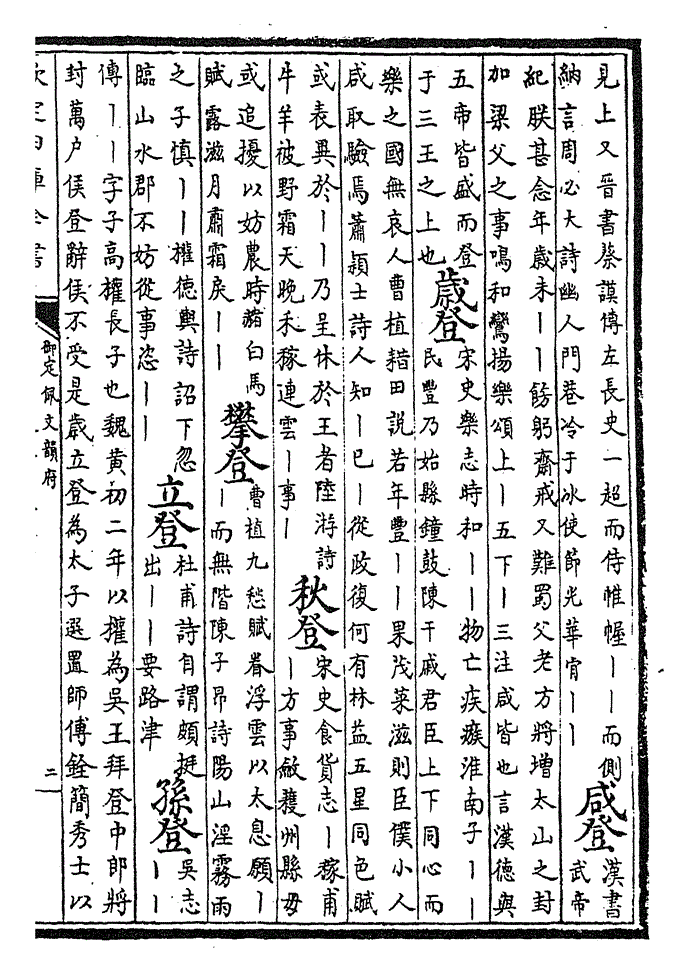 見上又晉書蔡謨傳左長史一超而侍帷幄丨丨而側
納言周必大詩幽人門巷冷于冰使節光華肯丨丨
咸登
漢書
武帝
紀朕甚念年歲未丨丨飭躬齋戒又難蜀父老方將增太山之封
加梁父之事鳴和鸞揚樂頌上丨五下丨三注咸皆也言漢德與
五帝皆盛而登
于三王之上也
歲登
宋史樂志時和丨丨物亡疾瘯淮南子丨丨
民豐乃始縣鐘鼓陳干戚君臣上下同心而
樂之國無哀人曹植耤田說若年豐丨丨果茂菜滋則臣僕小人
咸取驗焉蕭穎士詩人知丨已丨從政復何有林益五星同色賦
或表異於丨丨乃呈休於王者陸游詩
牛羊被野霜天晚禾稼連雲丨事丨
秋登
宋史食貨志丨稼甫
丨方事斂穫州縣毋
或追擾以妨農時赭白馬
賦露滋月肅霜戾丨丨
攀登
曹植九愁賦眷浮雲以太息願丨
丨而無階陳子昂詩陽山淫霧雨
之子慎丨丨權德輿詩詔下忽
臨山水郡不妨從事恣丨丨
立登
杜甫詩自謂頗挺
出丨丨要路津
孫登
吳志
丨丨
傳丨丨字子高權長子也魏黃初二年以權為吳王拜登中郎將
封萬户侯登辭侯不受是歲立登為太子選置師傅銓簡秀士以
欽定四庫全書
御定佩文韻府
二